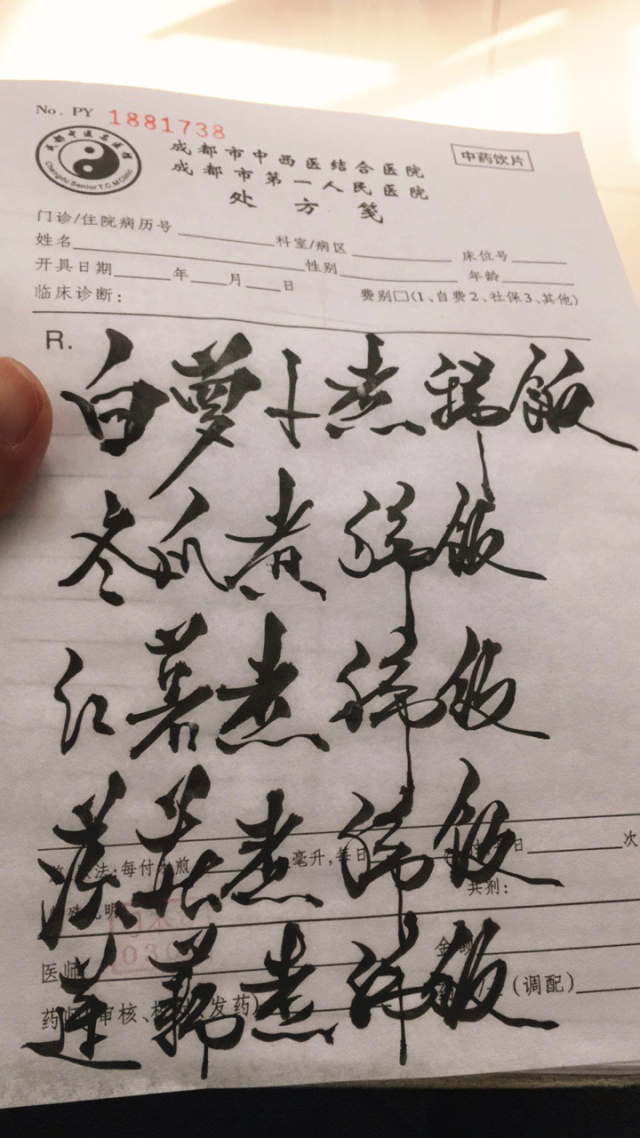 No. PY 1881738
Chengdu Senior T.C.M Clinic
成都市中西医结合医院
成都市第一人民医院
中药饮片
处方笺
门诊/住院病历号 科室/病区 床位号
姓名 性别 年龄
开具日期 年 月 日
临床诊断: 费别□(1、自费2、社保3、其他)
R.
白萝卜煮稀饭
冬瓜煮稀饭
红薯煮稀饭
茨菇煮稀饭
法:每付 煎 毫升,每日 日 次
共剂:
医师
莲藕煮稀饭
(调配)
药师 审核、 发药)